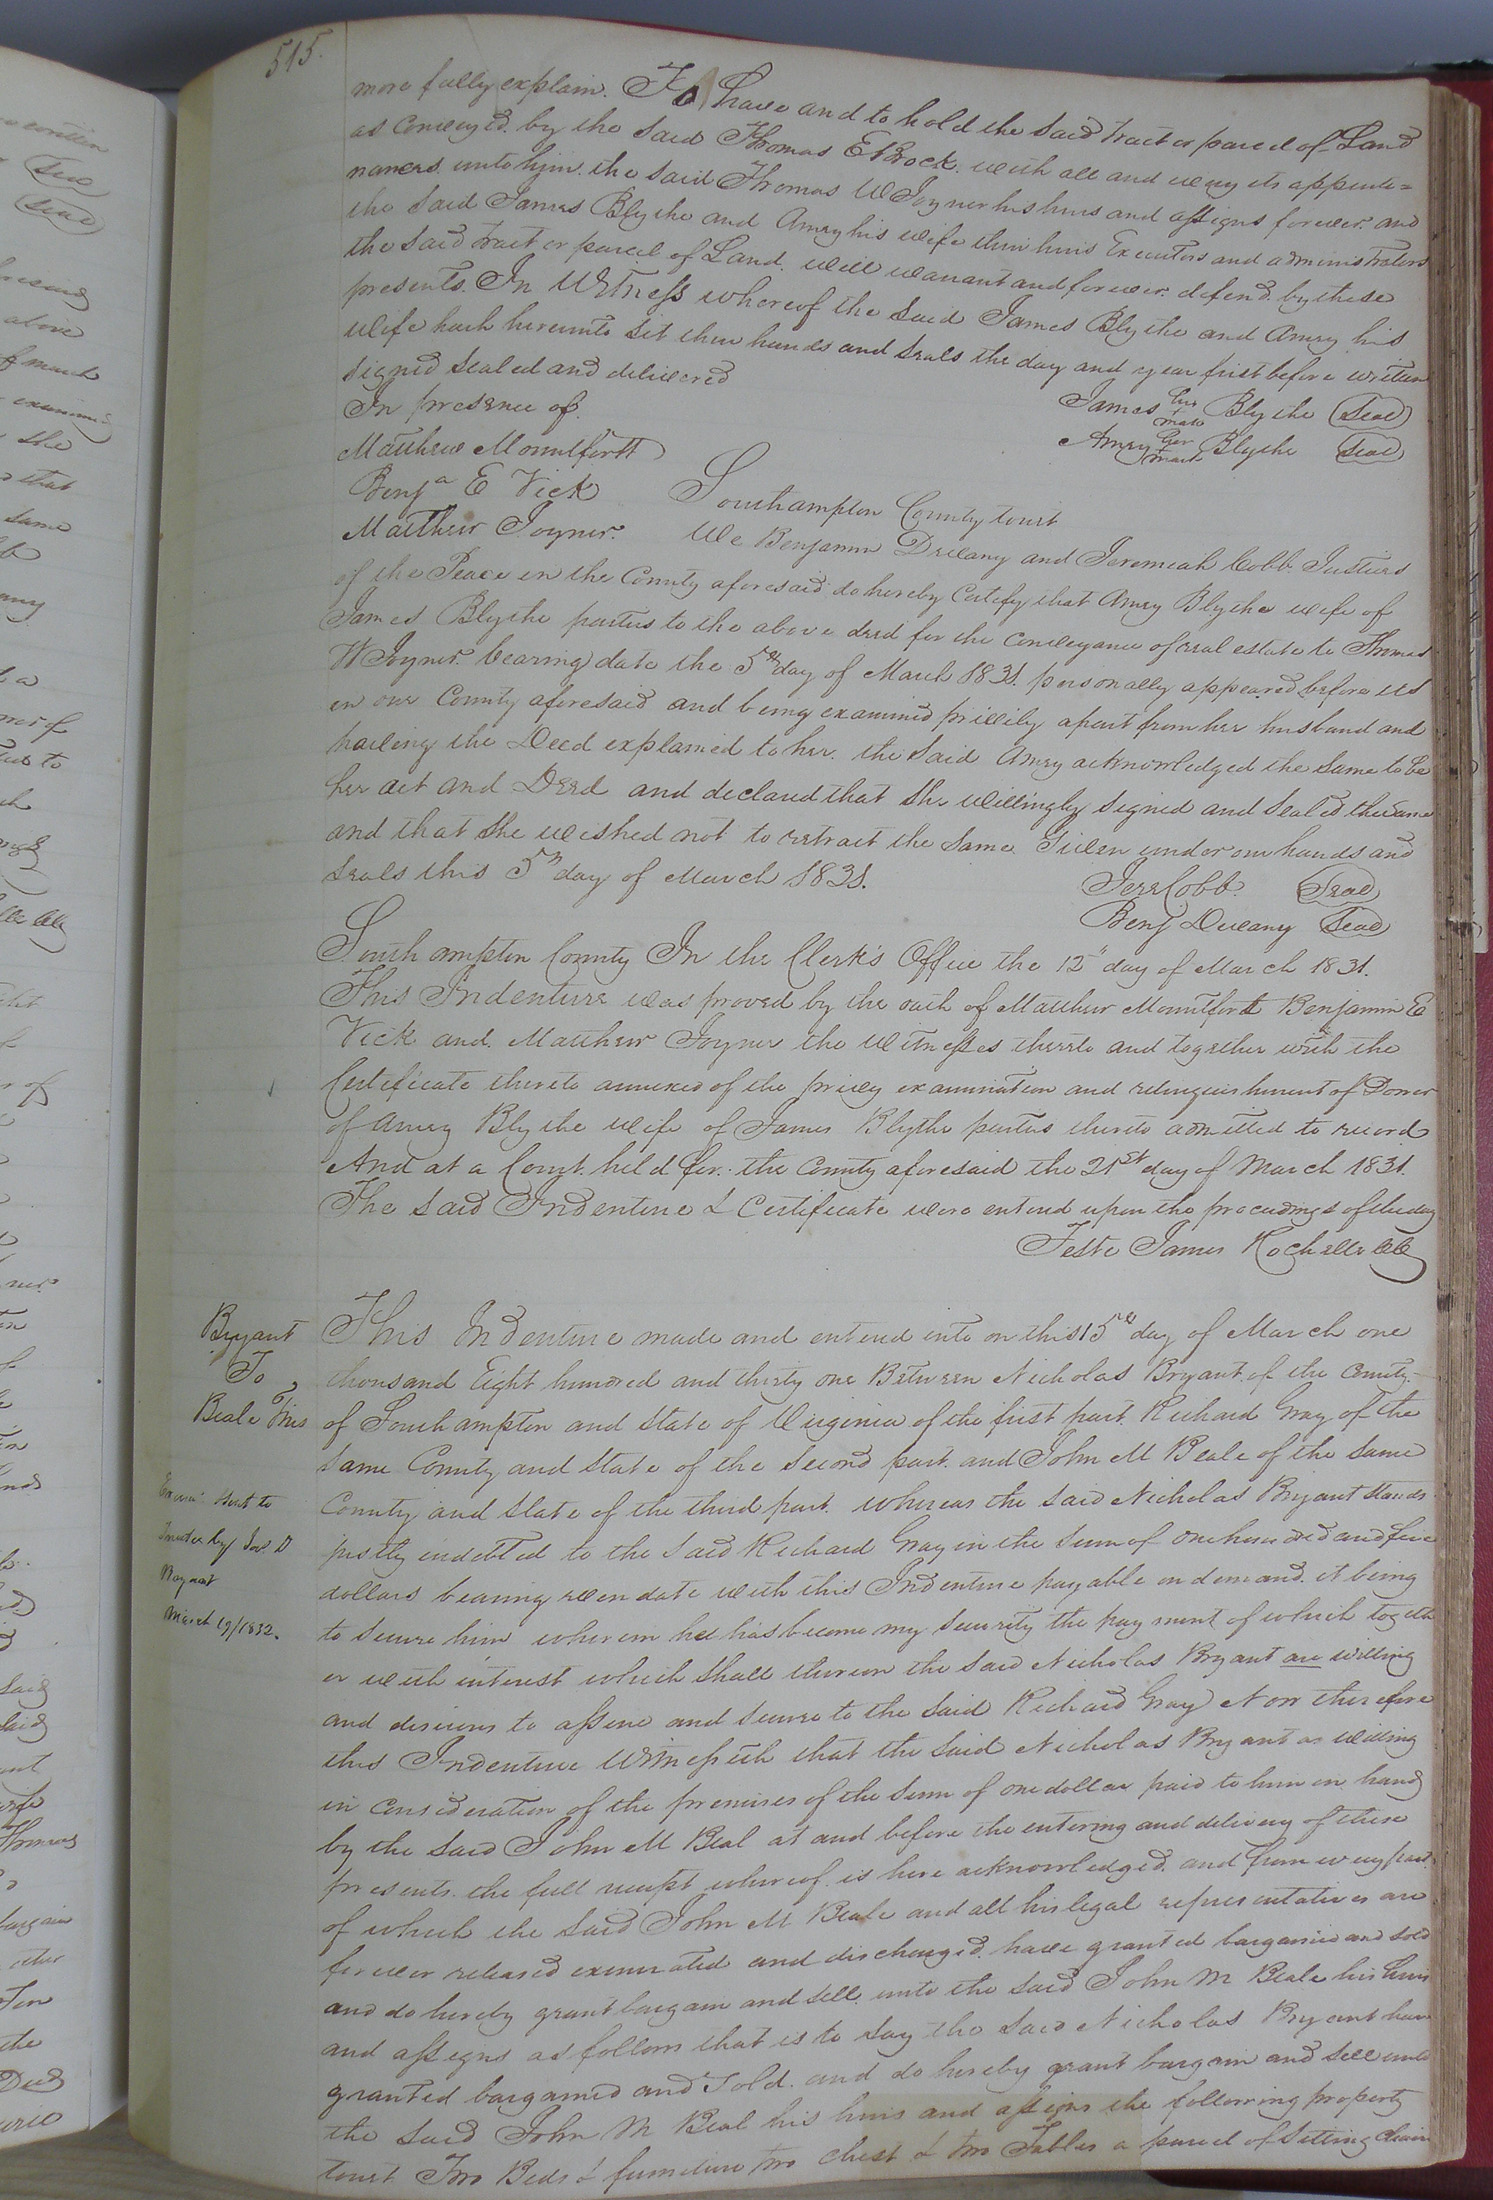 515.
more fully explain. To have and to hold the said tract or parcel of Land
as conveyed by the said Thomas E Brock with all and every its appurte=
nances unto him the said Thomas W Joyner his heirs and assigns forever and
the said James Blythe and Amey his wife their heirs Executors and administrators
the said tract or parcel of Land will warrant and forever defend by these
presents. In Witness whereof the said James Blythe and Amey his
wife hath hereunto set their hands and seals the day and year first before written
signed sealed and delivered
In presence of
James his mark Blythe (Seal)
Matthew Mountfortt
Amey her mark Blythe (Seal)
Benja E Vick
Southampton County towit
Matthew Joyner.
We Benjamin Devany and Jeremiah Cobb Justices
of the Peace in the County aforesaid do hereby Certify that Amey Blythe wife of
James Blythe parties to the above deed for the conveyance of real estate to Thomas
W Joyner bearing date the 5th day of March 1831. personally appeared before us
in our County aforesaid and being examined privily apart from her husband and
having the Deed explained to her. the said Amey acknowledged the same to be
her act and Deed and declared that she willingly signed and sealed the same
and that she wished not to retract the same. Given under our hands and
seals this 5th day of March 1831.
Jere Cobb (Seal)
Benj Devany (Seal)
Southampton County In the Clerk's Office the 12th day of March 1831.
This Indenture was proved by the oath of Matthew Mountfortt Benjamin E
Vick and Matthew Joyner the witnesses thereto and together with the
Certificate thereto annexed of the privy examination and relinquishment of Dower
of Amey Blythe wife of James Blythe parties thereto admitted to record
And at a Court held for the County aforesaid the 21st day of March 1831.
The said Indenture & Certificate were entered upon the proceedings of the day
Teste James Rochelle
Bryant
To
Beale Trus
This Indenture made and entered into on this 15th day of March one
thousand Eight hundred and thirty one Between Nicholas Bryant of the County
of Southampton and State of Virginia of the first part. Richard Gray of the
same County and State of the second part and John M Beale of the same
County and State of the third part. whereas the said Nicholas Bryant stands
justly indebted to the said Richard Gray in the sum of one hundred and five
dollars bearing even date with this Indenture payable on demand. it being
to secure him wherein he has become my security the payment of which togeth
er with interest which shall thereon the said Nicholas Bryant are willing
and desirous to assure and secure to the said Richard Gray Now therefore
this Indenture Witnesseth that the said Nicholas Bryant as willing
in consideration of the premises of the sum of one dollar paid to him in hand
by the said John M Beal at and before the entering and delivery of these
presents. the full receipt whereof is here acknowledged. and from every part
of which the said John M Beale and all his legal representatives are
forever released exonerated and discharged. have granted bargained and sold
and do hereby grant bargain and sell unto the said John M Beale his heirs
and assigns as follows that is to say the said Nicholas Bryant have
granted bargained and Sold. and do hereby grant bargain and sell unto
the said John M Beal his heirs and assigns the following property
towit Two Beds & furniture two chest & two Tables a parcel of Sitting chairs
to
Trustee by
Bryant
March 19/1832.